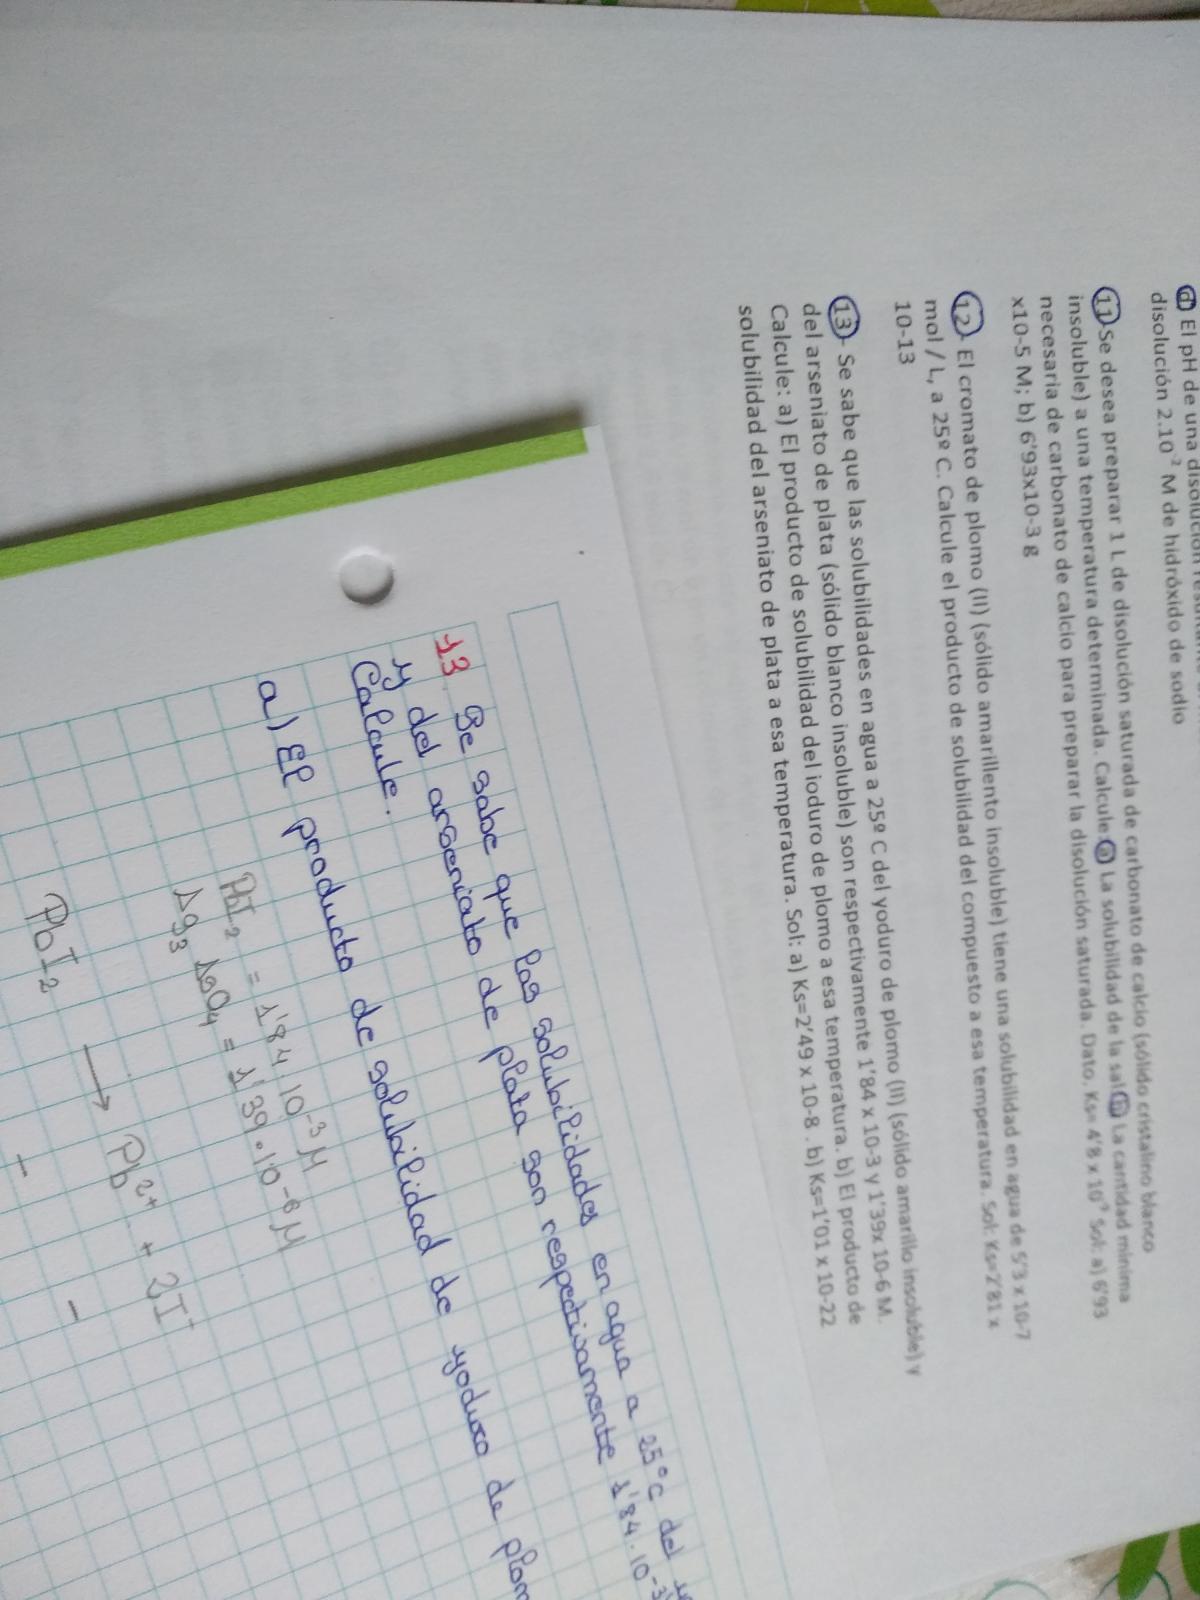 d) El pH de una disolución
disolución 2.10⁻² M de hidróxido de sodio
11 Se desea preparar 1 L de disolución saturada de carbonato de calcio (sólido cristalino blanco
insoluble) a una temperatura determinada. Calcule: a) La solubilidad de la sal b) La cantidad mínima
necesaria de carbonato de calcio para preparar la disolución saturada. Dato. Ks= 4'8 x 10⁻⁹ Sol: a) 6'93
x10-5 M; b) 6'93x10-3 g
12- El cromato de plomo (II) (sólido amarillento insoluble) tiene una solubilidad en agua de 5'3 x 10-7
mol / L, a 25º C. Calcule el producto de solubilidad del compuesto a esa temperatura. Sol: Ks=2'81 x
10-13
13- Se sabe que las solubilidades en agua a 25º C del yoduro de plomo (II) (sólido amarillo insoluble) y
del arseniato de plata (sólido blanco insoluble) son respectivamente 1'84 x 10-3 y 1'39x 10-6 M.
Calcule: a) El producto de solubilidad del ioduro de plomo a esa temperatura. b) El producto de
solubilidad del arseniato de plata a esa temperatura. Sol: a) Ks=2'49 x 10-8 . b) Ks=1'01 x 10-22
13 Se sabe que las solubilidades en agua a 25°C del
y del arseniato de plata son respectivamente 1'84 · 10⁻³
Calcule.
a) El producto de solubilidad de yoduro de plom
PbI₂ = 1'84 10⁻³ M
Ag₃ AsO₄ = 1'39 · 10⁻⁶ M
PbI₂ → Pb²⁺ + 2I⁻
- -